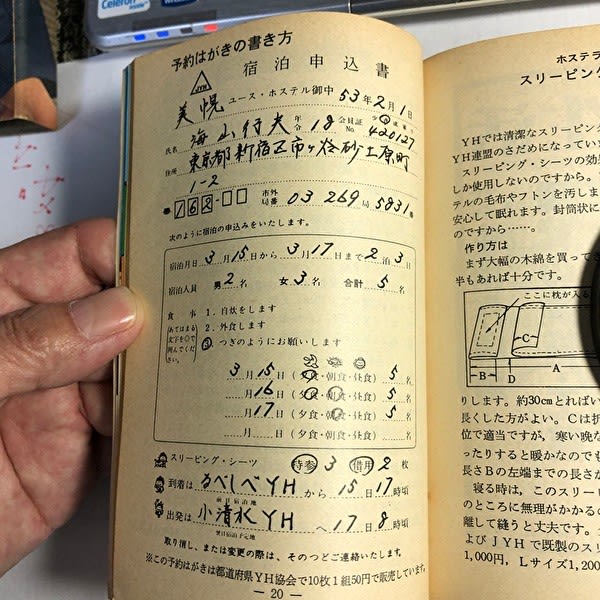 Celeron
inside
予約はがきの書き方
JYH
宿泊申込書
美幌 ユース・ホステル御中 53年2月1日
氏名 海山行夫 年令 18 会員証No. 420127
住所 東京都新宿区市ヶ谷砂土原町
1-2
162-□□ 市外局番 03 269局 5831番
次のように宿泊の申込みをいたします。
宿泊月日 3月15日から 3月17日まで 2泊 3日
宿泊人員 男2名 女3名 合計5名
食事 1. 自炊をします
(あてはまる文字を○で囲んでください。) 2. 外食します
3 つぎのようにお願いします
3月15日(夕食・朝食・昼食) 5名
月16日(夕食・朝食・昼食) 5名
月17日(夕食・朝食・昼食) 5名
月 日(夕食・朝食・昼食) 名
スリーピング・シーツ 持参 3 借用 2枚
到着は るべしべYH から 15日17時頃
前日宿泊地
出発は 小清水YH へ 17日8時頃
翌日宿泊予定地
取り消し、または変更の際は、そのつどご連絡いたします。
※この予約はがきは都道府県YH協会で10枚1組50円で販売しています。
― 20 ―
ホステラ
スリーピング
YHでは清潔なスリーピン
YH連盟のさだめになってい
スリーピング・シーツの効
しか使用しないのですから、
テルの毛布やフトンを汚しま
安心して眠れます。封筒状に
のですから……。
作り方は
まず大幅の木綿を買ってき
半もあれば十分です。
ここに枕が入る
C
B
D
A
りします。約30cmとればい
長くした方がよい。Cは折
位で適当ですが、寒い晩な
ったりすると暖かなのでも
長さBの左端までの長さが
寝る時は、このスリー
のところに無理がかかるの
離して縫うと丈夫です。
よびJYHで既製のスリ
1,000円, Lサイズ1,20